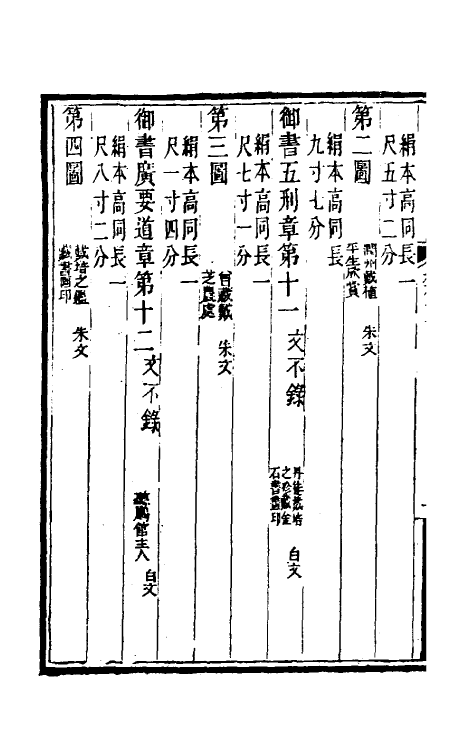 絹本高同長一
尺五寸二分
第二圖 潤州戴植平生欣賞 朱文
絹本高同長
九寸七分
御書五刑章第十一文不錄 丹徒戴培之珍藏金石書畫印 白文
絹本高同長一
尺七寸一分
第三圖 曾藏戴芝農處 朱文
絹本高同長一
尺一寸四分
御書廣要道章第十二文不錄 館主人 白文
絹本高同長一
尺八寸二分
第四圖 戴培之鑑藏書畫印 朱文